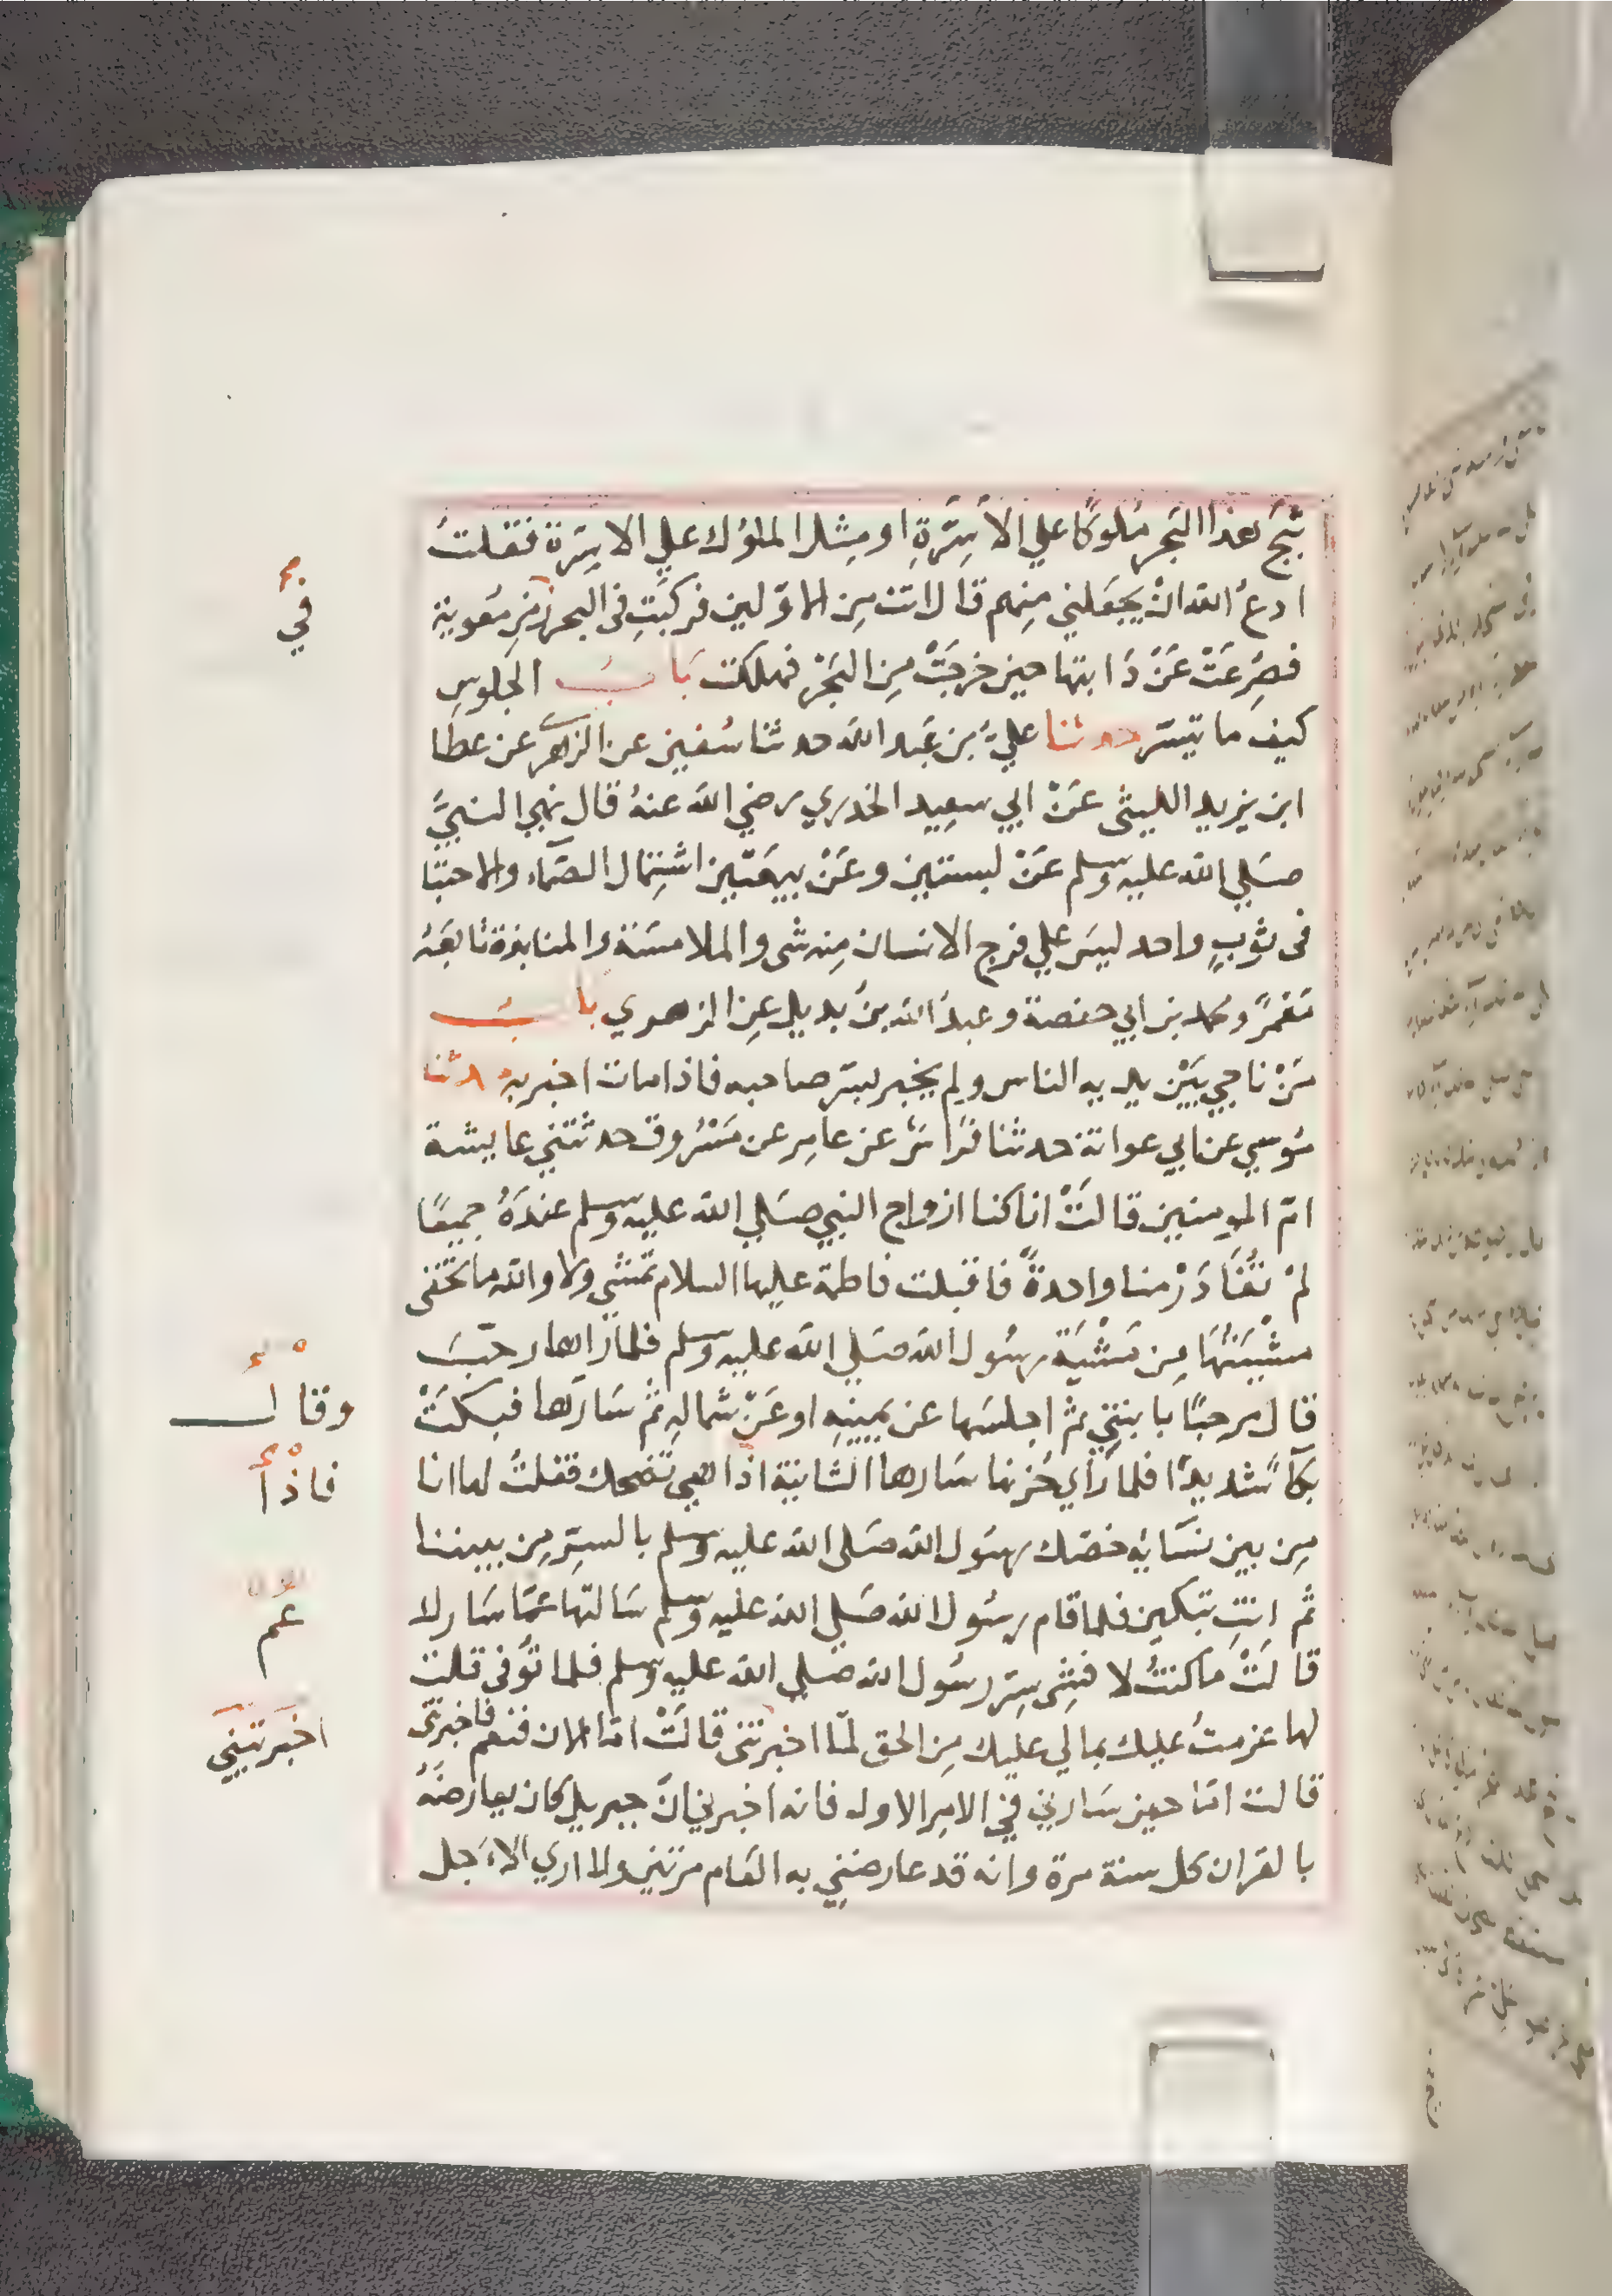 ثَبَجَ هذا البَحر مُلوكًا علي الأسِرَّةِ او مِثلُ الملوُك علي الاسِرّة فقلتُ
ادعُ الله انْ يَجعَلني مِنهم قال انت مِن الاوّلين فركبَتِ في البحر زمن مُعوية
فصُرِعَتْ عَنْ دَابتها حين خرجَتْ مِن البَحْر فهلكت بَابُ الجلوسِ
كيف ما تيسّر حدثنا عليُّ بن عَبد الله حدثنا سُفين عن الزهري عن عطا
ابن يزيد الليثى عَنْ ابي سعِيد الخدري رضي الله عنهُ قال نهي النبيُّ
صَلي الله عليه وسلم عَنْ لبستين وعَنْ بيعَتَين اشتِمال الصَّماء والاحتبا
فى ثوبٍ واحد ليسَ علي فرج الانسان مِنه شى والملامسَة والمنابذة تابعَهُ
مَعْمَرٌ ومحمد بن ابي حفصة وعبدُ الله بنُ بديل عِن الزهري بابُ
مَنْ ناجي بَيْن يديه الناس ولم يخبر بسِرّ صاحبه فاذا مات اخبر به حدثنا
مُوسي عن ابي عوانة حدثنا فرَاسٌ عن عامِر عن مَسْرُوق حدثتني عايشة
امّ المومِنين قالتْ انا كنا ازواج النبي صَلي الله عليه وسلم عندَهُ جميعًا
لمْ تُغَادَرْ منا واحدةٌ فاقبلت فاطمة عليها السلام تَمشي ولا والله ما تخفى
مشيَتُهَا مِن مَشْيَةِ رسُول الله صَلي الله عليه وسلم فلما رَاها رحّبَ
قال مرحبًا بابنتي ثمّ اجلسَها عن يمينِهِ او عَنْ شمالِهِ ثُم سَارّها فبكتْ
بكآً شديدًا فلما رَأي حُزنها سَارها الثانية اذا هي تضحك فقلتُ لها انا
مِن بين نسَايهِ خصّك رسُول الله صَلي الله عليه وسلم بالسِّرِ مِن بيننا
ثم انتِ تبكين فلما قام رسُول الله صَلي الله عليه وسلم سَالتها عمّا سَارك
قالتْ ما كنتُ لافشِى سِرّ رسُول الله صَلي الله عليه وسلم فلما تُوفى قلت
لها عزمتُ عليك بما لي عليك مِن الحق لمّا اخبرتنى قالتْ امّا الان فنعم فاخبرتنى
قالت امّا حين سَارني في الامر الاول فانه اخبرني انّ جبريل كان يعارضَهُ
بالقران كل سنة مرة وانه قد عارضني به العَام مرتين ولا اري الاجل
في
وقال
فاذا
عم
اخبَرتنِي